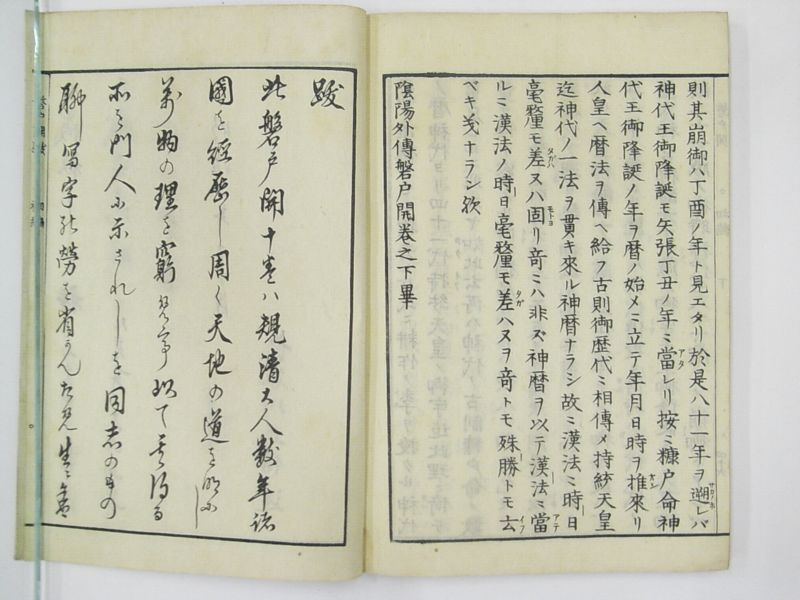 則其崩御ハ丁酉ノ年ト見エタリ於是八十一年ヲ遡レバ
神代王御降誕モ矢張丁丑ノ年ミ當レリ按ミ糠戸命神
代王御降誕ノ年ヲ暦ノ始メミ立テ年月日時ヲ推來リ
人皇ヘ暦法ヲ傳ヘ給フ古則御歴代ミ相傳メ持統天皇
迄神代ノ一法ヲ貫キ來ル神暦ナラシ故ミ漢法ミ時日
毫釐モ差ヌハ固リ竒ミハ非ズ神暦ヲ以テ漢法ミ當
ルミ漢法ノ時日毫釐モ差ハヌヲ竒トモ殊勝トモ云
ベキ㕝ナラン歟
陰陽外傳磐戸開巻之下畢
跋
此磐戸開十巻ハ規清大人数年諸
國を経歴し周く天地の道を
万物の理を窮 以て
門人に示されしを同志のもの
聊寫字の勞を省かん